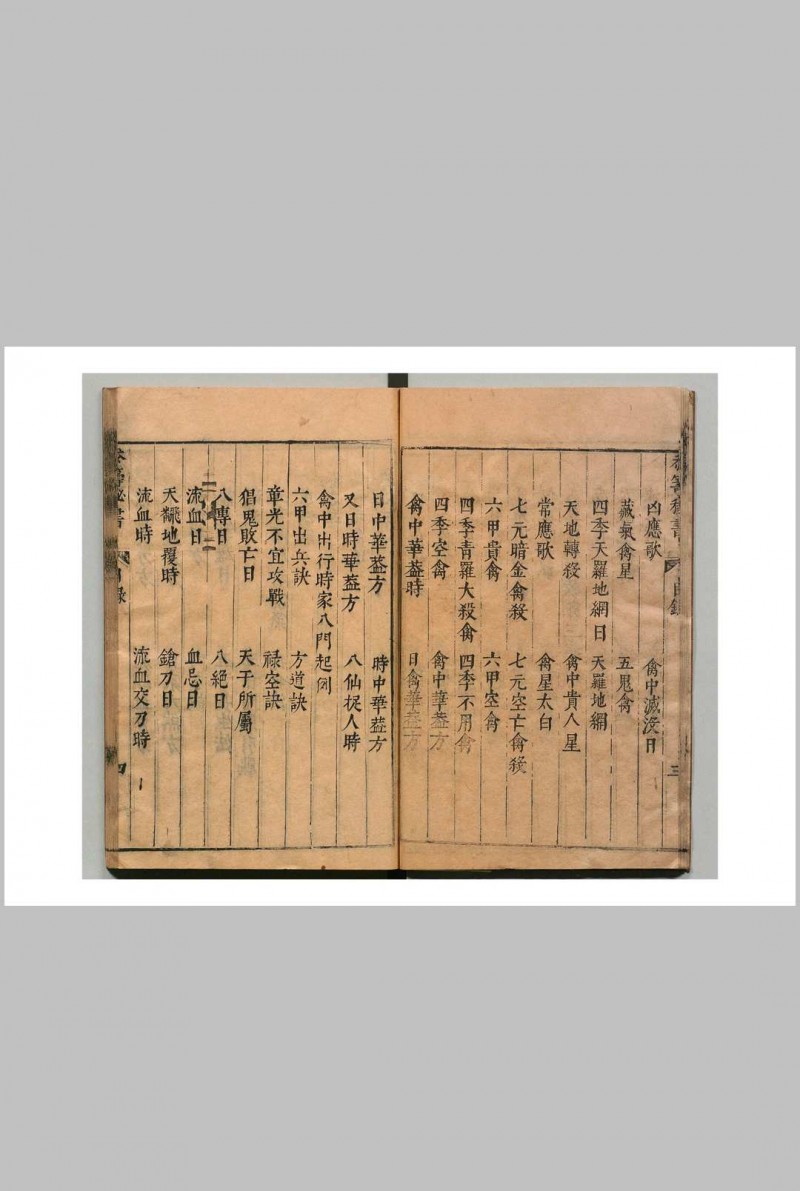 凶應歌　禽中滅没日
藏氣禽星　五鬼禽
四季天羅地網日　天羅地網
天地轉殺　禽中貴人星
常應歌　禽星太白
七元暗金禽殺　七元空亡禽殺
六甲貴禽　六甲空禽
四季青羅大殺禽　四季不用禽
四季空禽　禽中華葢方
禽中華葢時　日禽華葢方
目錄　三
日中華葢方　時中華葢方
又日時華葢方　八仙捉人時
禽中出行時家八門起例
六甲出兵訣　方道訣
章光不宜攻戰　祿空訣
猖鬼敗亡日　天子所屬
八專日　八絕日
流血日　血忌日
天翻地覆時　鎗刀日
流血時　流血交刀時
秘書　目錄　四